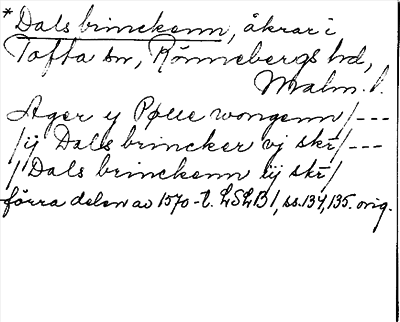 *Dals brinckenn, åkrar i
Tofta sn, Rönnebergs hd,
Malm. l.
Ager y Pølle wongenn/---
/ij Dals brincker vj skr/---
/Dals brinckenn iij skr/
förra delen av 1570-t. LSLB1, ss. 134, 135. orig.